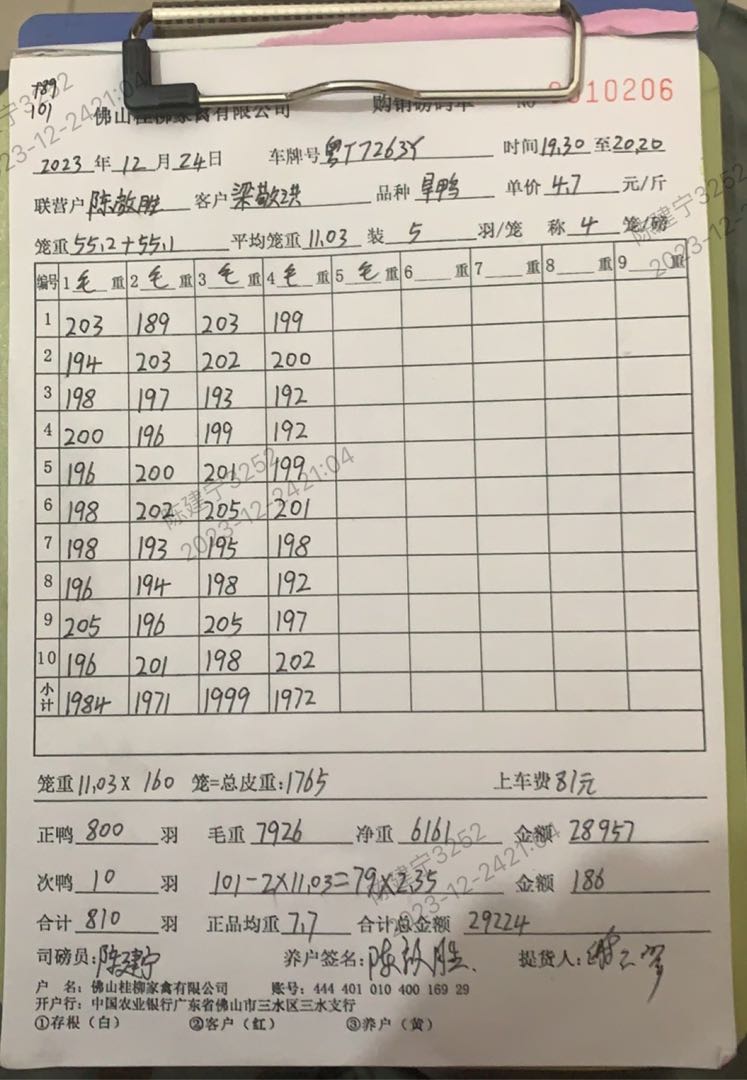 789
101
佛山桂柳家禽有限公司 购销磅码单 No 0010206
2023 年 12 月 24 日 车牌号 粤T7263Y 时间 19.30 至 20.20
联营户 陈敬胜 客户 梁敬洪 品种 旱鸭 单价 4.7 元/斤
笼重 55.2+55.1 平均笼重 11.03 装 5 羽/笼 称 4 笼/磅
编号 1 毛 重 2 毛 重 3 毛 重 4 毛 重 5 毛 重 6 重 7 重 8 重 9 重
1 203 189 203 199
2 194 203 202 200
3 198 197 193 192
4 200 196 199 192
5 196 200 201 199
6 198 202 205 201
7 198 193 195 198
8 196 194 198 192
9 205 196 205 197
10 196 201 198 202
小计 1984 1971 1999 1972
笼重 11.03 X 160 笼=总皮重:1765 上车费 81元
正鸭 800 羽 毛重 7926 净重 6161 金额 28957
次鸭 10 羽 101-2X11.03=79X2.35 金额 186
合计 810 羽 正品均重 7.7 合计总金额 29224
司磅员: 陈建宁 养户签名: 陈敬胜. 提货人:
户 名: 佛山桂柳家禽有限公司 账号: 444 401 010 400 169 29
开户行: 中国农业银行广东省佛山市三水区三水支行
①存根(白) ②客户(红) ③养户(黄)
陈建宁3252
2023-12-2421:04